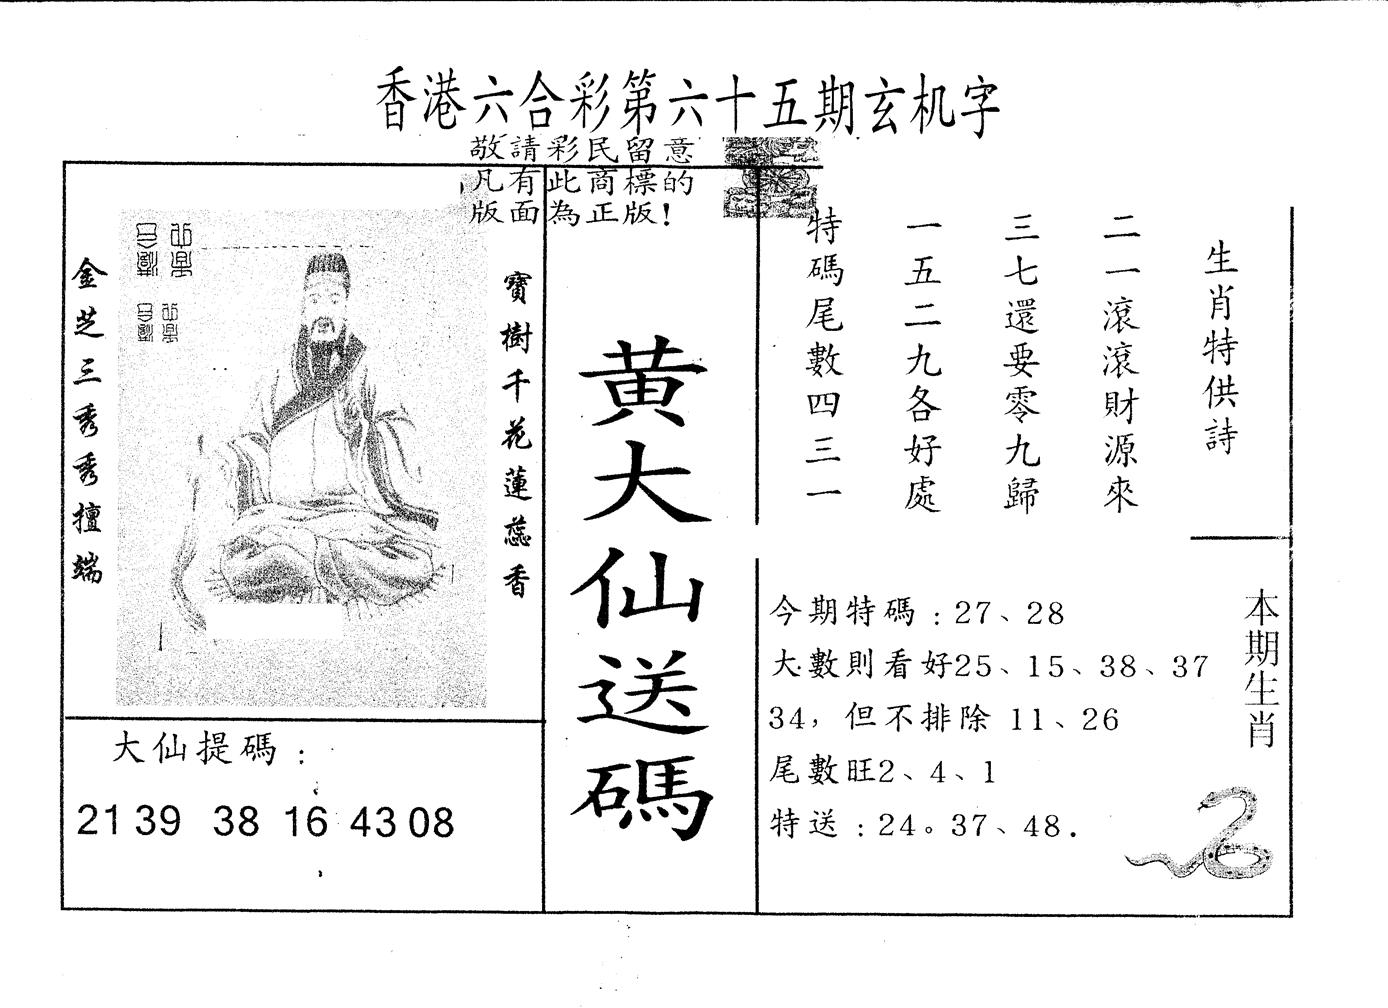 香港六合彩第六十五期玄机字
敬請彩民留意
凡有此商標的
版面為正版!
寶樹千花蓮蕊香
金芝三秀秀擅端
大仙提碼:
21 39 38 16 43 08
黃大仙送碼
生肖特供詩
二一滾滾財源來
三七還要零九歸
一五二九各好處
特碼尾數四三一
今期特碼:27、28
大數則看好25、15、38、37
34，但不排除 11、26
尾數旺2、4、1
特送:24。37、48.
本期生肖